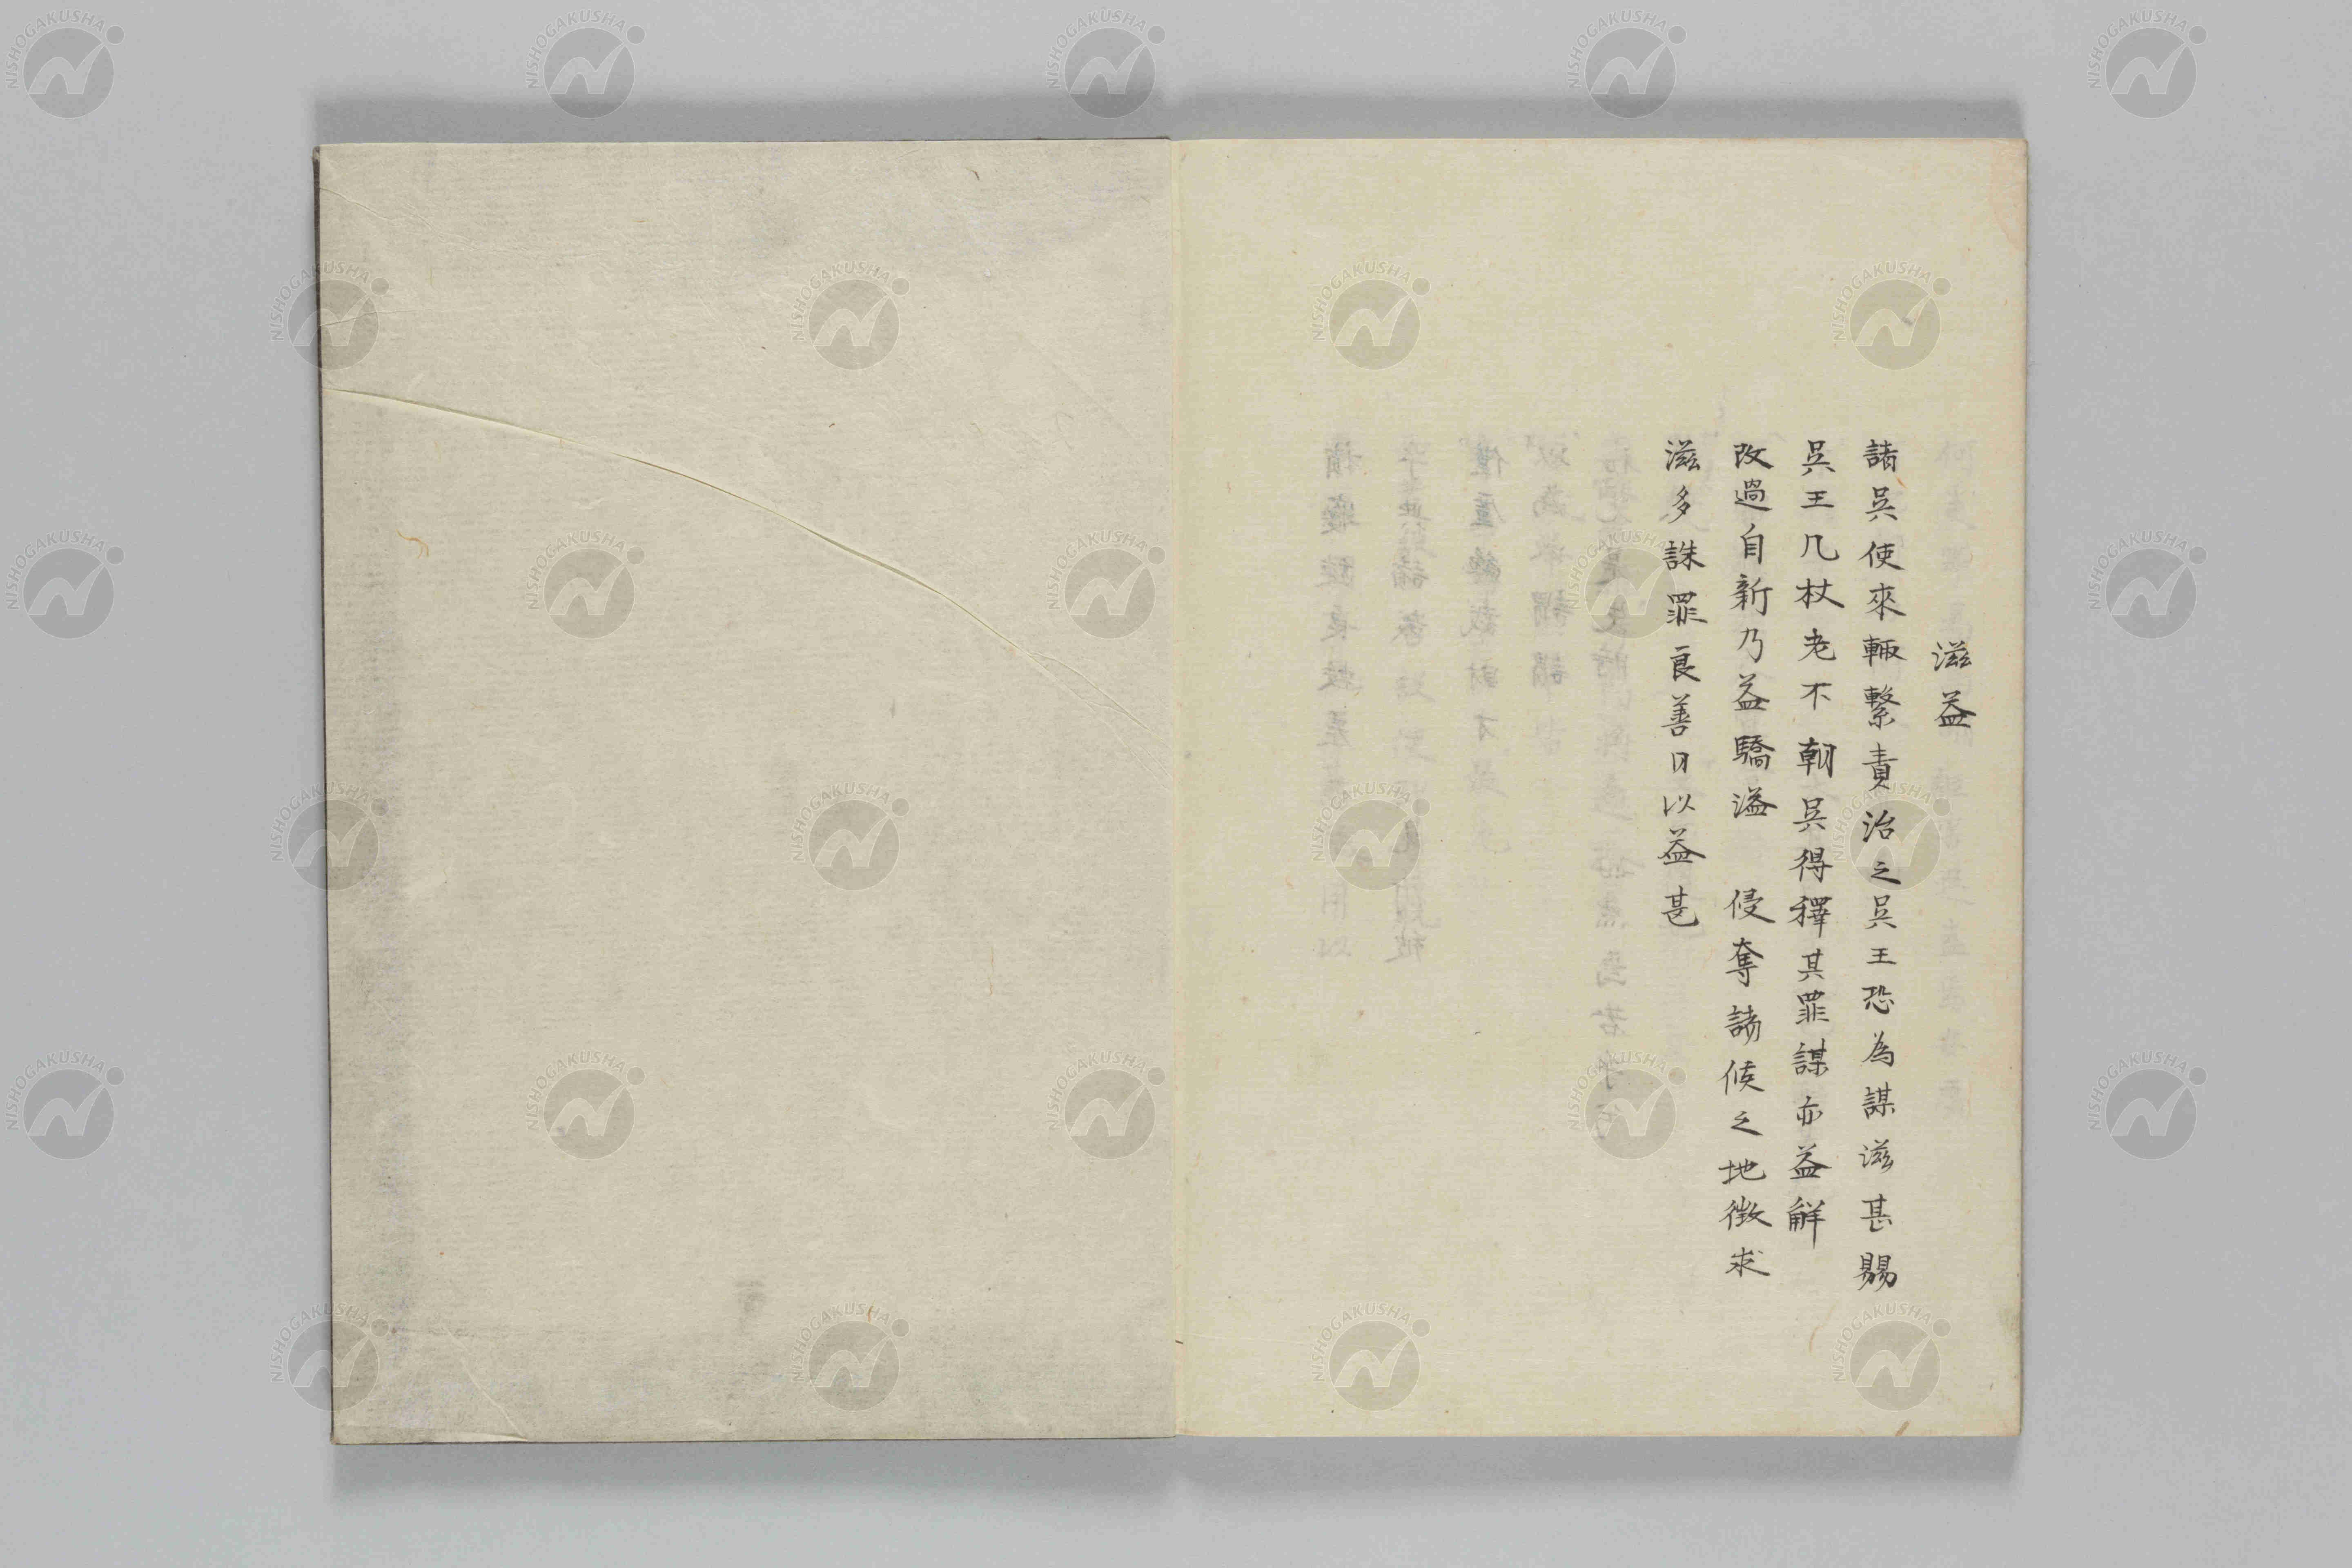 滋益
諸呉使來輙繋責治之呉王恐為謀滋甚賜
呉王几杖老不朝呉得釋其罪謀亦益觧
改過自新乃益驕溢　侵奪諸候之地徴求
滋多誅罪良善日以益甚
NISHOGAKUSHA